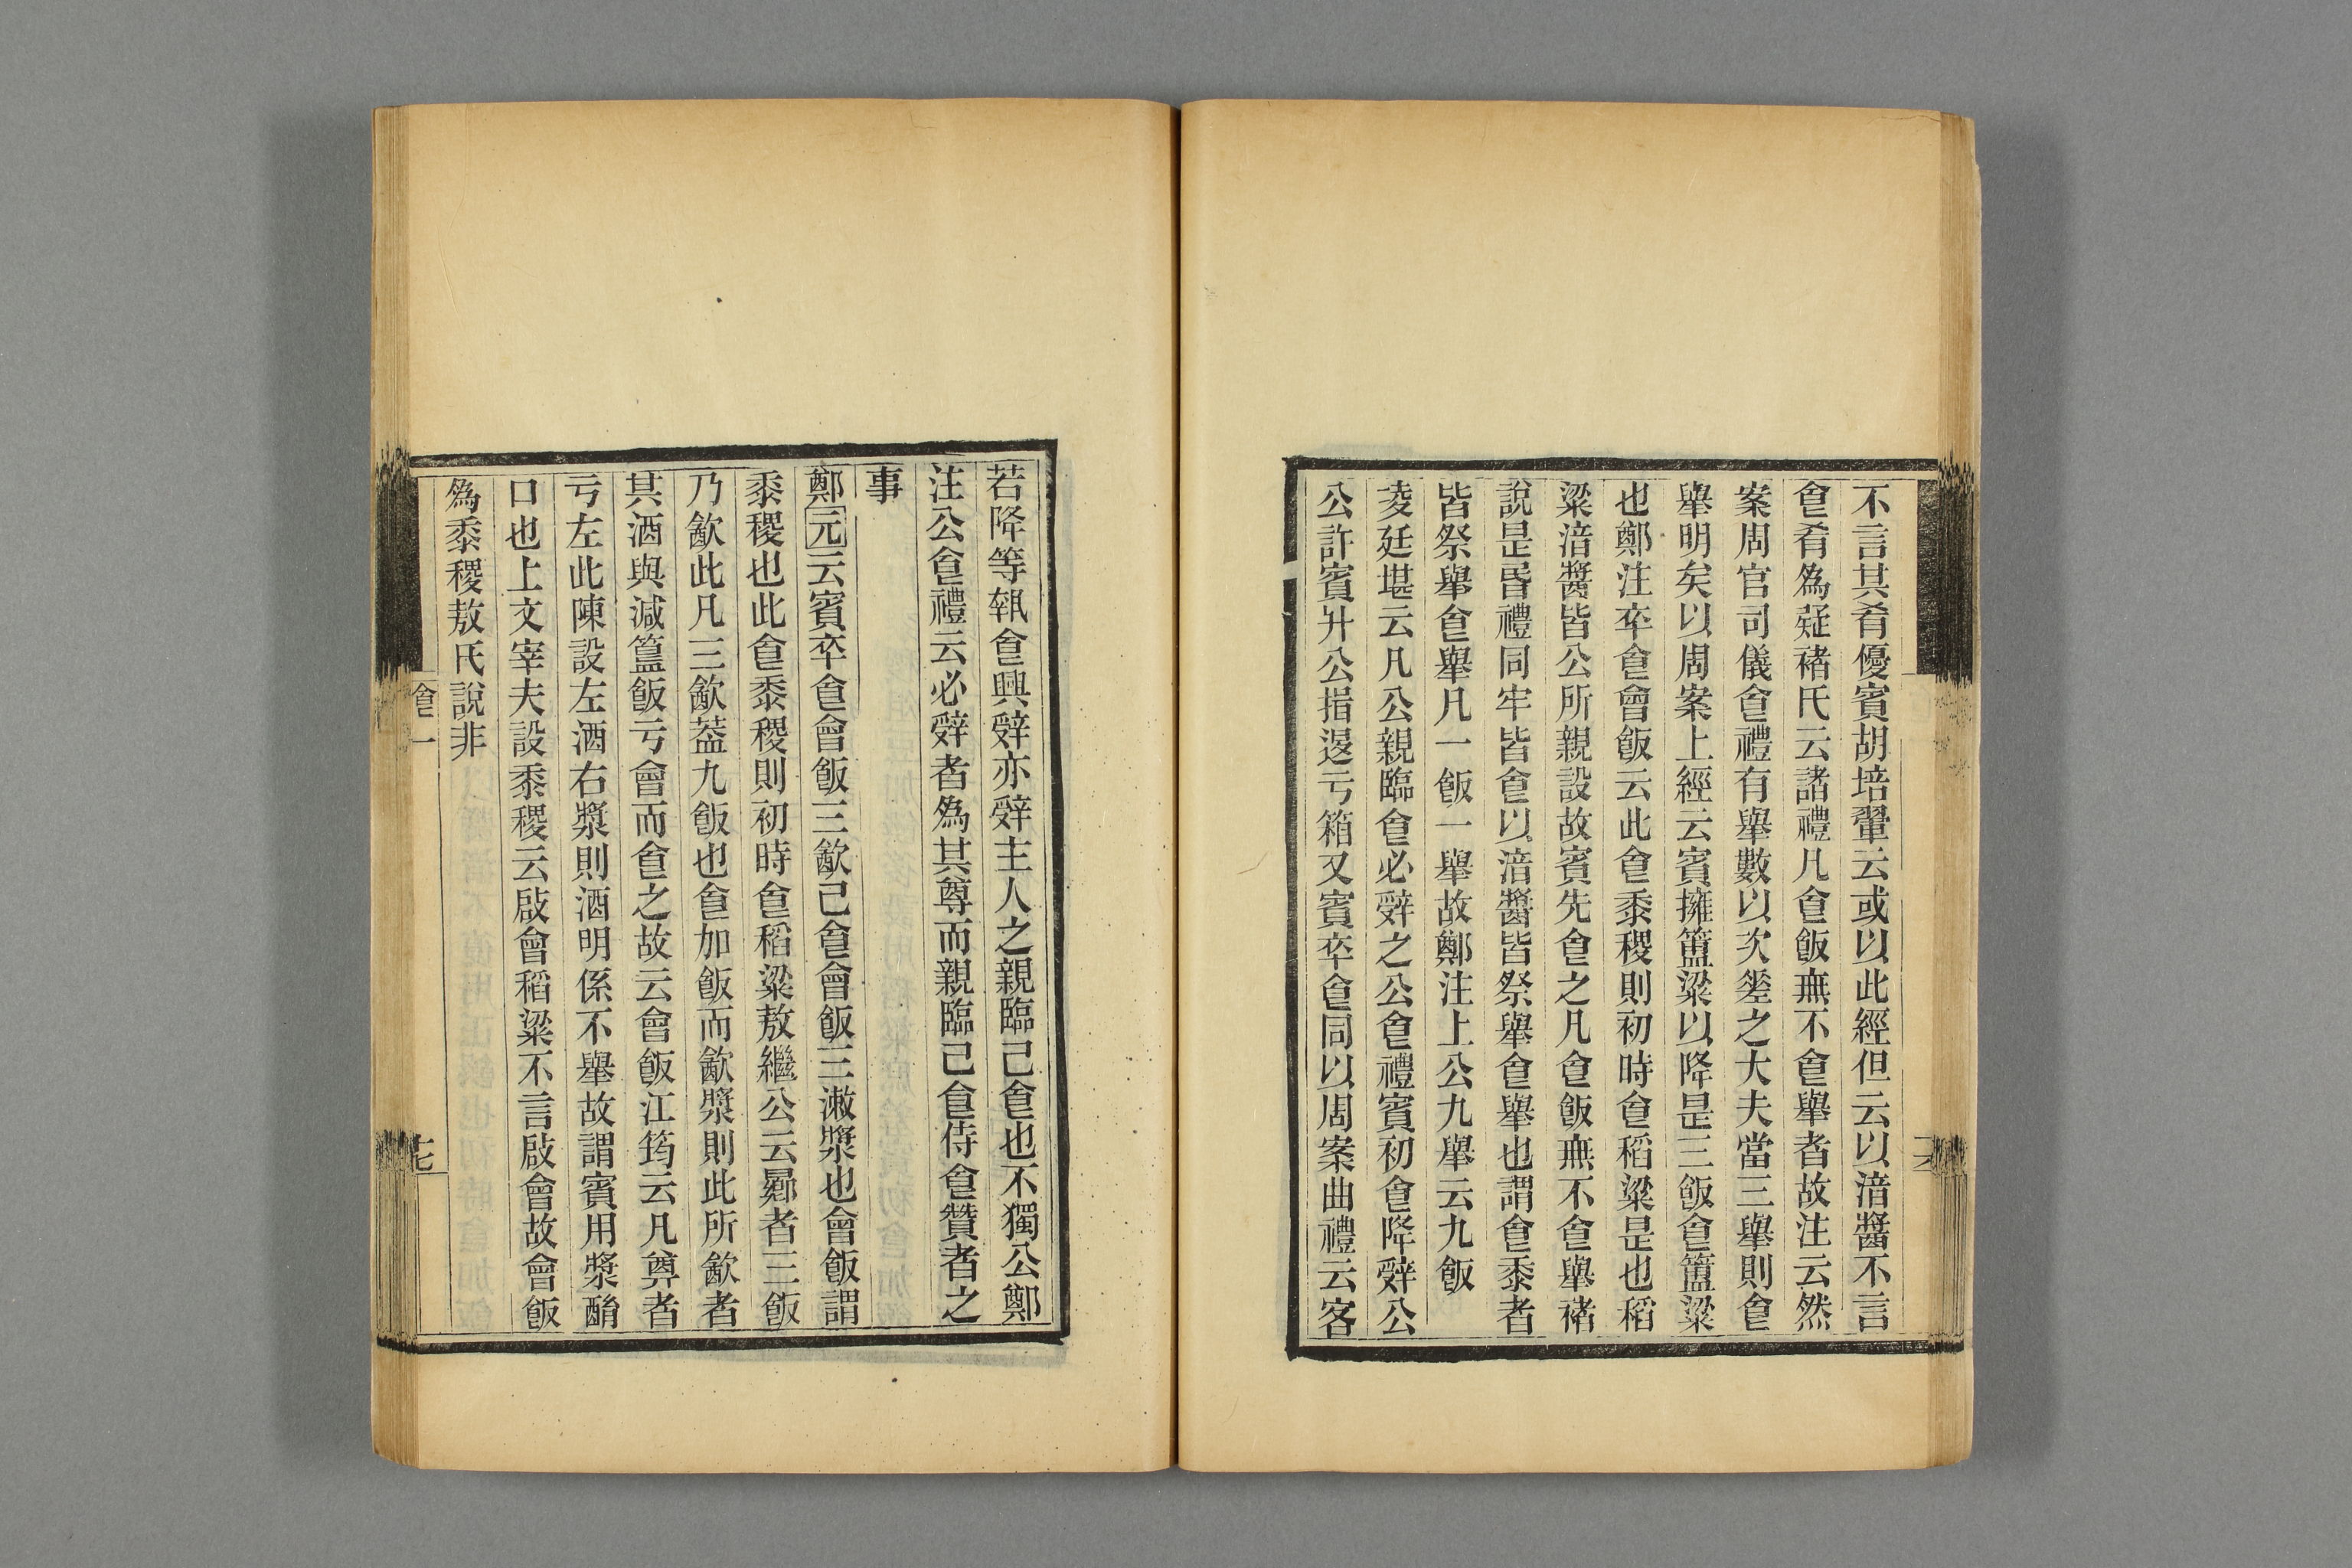 不言其肴優賓胡培翬云或以此經但云以湇醬不言
食肴為疑褚氏云諸禮凡食飯無不食舉者故注云然
案周官司儀食禮有舉數以次差之大夫當三舉則食
舉明矣以周案上經云賓擁簠粱以降是三飯食簠粱
也鄭注卒食會飯云此食黍稷則初時食稻粱是也稻
粱湇醬皆公所親設故賓先食之凡食飯無不食舉褚
說是昏禮同牢皆食以湇醬皆祭舉食舉也謂食黍者
皆祭舉食舉凡一飯一舉故鄭注上公九舉云九飯
凌廷堪云凡公親臨食必辤之公食禮賓初食降辤公
公許賓升公揖退亏箱又賓卒食同以周案曲禮云客
若降等執食興辤亦辤主人之親臨己食也不獨公鄭
注公食禮云必辤者為其尊而親臨己食侍食贊者之
事
鄭元云賓卒食會飯三飲己食會飯三漱漿也會飯謂
黍稷也此食黍稷則初時食稻粱敖繼公云曏者三飯
乃飲此凡三飲葢九飯也食加飯而飲漿則此所飲者
其酒與減簠飯亏會而食之故云會飯江筠云凡尊者
亏左此陳設左酒右漿則酒明係不舉故謂賓用漿酳
口也上文宰夫設黍稷云啟會稻粱不言啟會故會飯
為黍稷敖氏說非
食一
十七